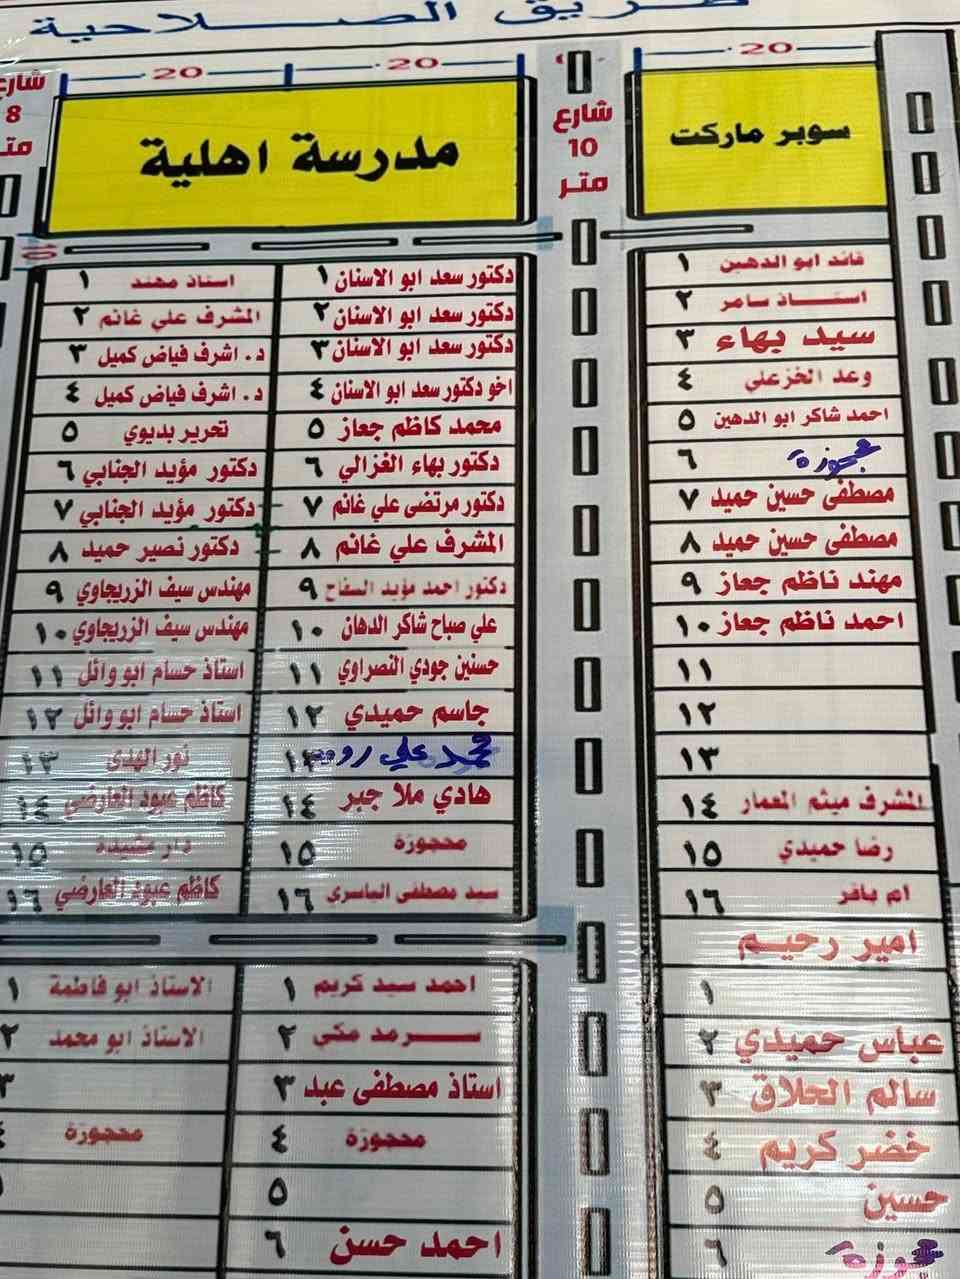 طريق الصلاحية
20
20
20
شارع 8 متر
مدرسة اهلية
شارع 10 متر
سوبر ماركت
١ قائد ابو الدهين
٢ استاذ سامر
٣ سيد بهاء
٤ وعد الخزعلي
٥ احمد شاكر ابو الدهين
٦ محجوزة
٧ مصطفى حسين حميد
٨ مصطفى حسين حميد
٩ مهند ناظم جعاز
١٠ احمد ناظم جعاز
١١
١٢
١٣
١٤ المشرف ميثم المعمار
١٥ رضا حميدي
١٦ ام باقر
امير رحيم
١
٢ عباس حميدي
٣ سالم الحلاق
٤ خضر كريم
٥ حسين
٦ محجوزة
١ دكتور سعد ابو الاسنان
٢ دكتور سعد ابو الاسنان
٣ دكتور سعد ابو الاسنان
٤ اخو دكتور سعد ابو الاسنان
٥ محمد كاظم جعاز
٦ دكتور بهاء الغزالي
٧ دكتور مرتضى علي غانم
٨ المشرف علي غانم
٩ دكتور احمد مؤيد السفاح
١٠ علي صباح شاكر الدهان
١١ حسنين جودي النصراوي
١٢ جاسم حميدي
١٣ محمد علي
١٤ هادي ملا جبر
١٥ محجوزة
١٦ سيد مصطفى الياسري
١ احمد سيد كريم
٢ سرمد مكي
٣ استاذ مصطفى عبد
٤ محجوزة
٥
٦ احمد حسن
١ استاذ مهند
٢ المشرف علي غانم
٣ د. اشرف فياض كميل
٤ د. اشرف فياض كميل
٥ تحرير بديوي
٦ دكتور مؤيد الجنابي
٧ دكتور مؤيد الجنابي
٨ دكتور نصير حميد
٩ مهندس سيف الزريجاوي
١٠ مهندس سيف الزريجاوي
١١ استاذ حسام ابو وائل
١٢ استاذ حسام ابو وائل
١٣ نور الهدى
١٤ كاظم عبود العارضي
١٥ دار مشيدة
١٦ كاظم عبود العارضي
١ الاستاذ ابو فاطمة
٢ الاستاذ ابو محمد
٣
٤ محجوزة